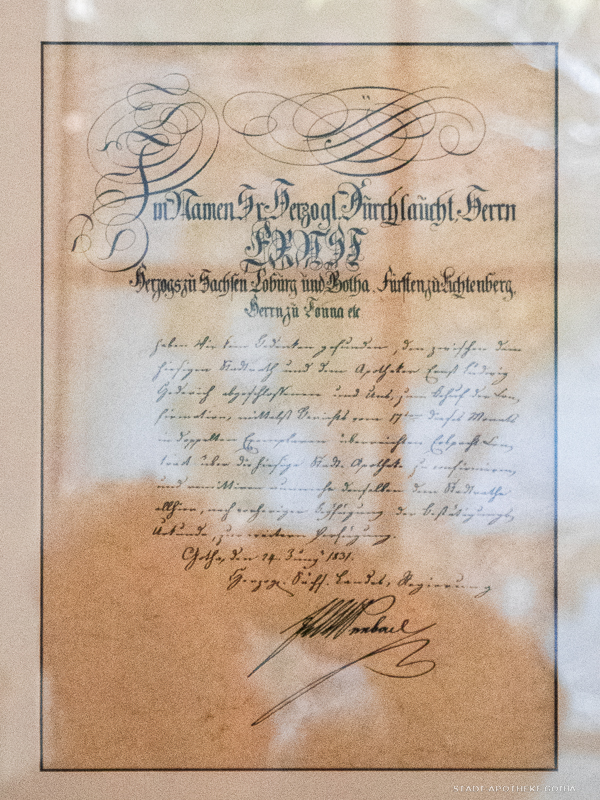 Im Namen Sr. Herzogl. Dürchlaücht, Herrn
ERNST
Herzogs zu Sachsen Coburg und Gotha, Fürsten zu Lichtenberg,
Herrn zu Tonna etc
haben Wir kein Bedenken gefunden, den zwischen dem
hiesigen Stadtrath und dem Apotheker Ernst Ludwig
abgeschlossenen und Uns, zum Behuf der Con,
firmation, mittelst Berichts vom 17ten dieses Monats
in doppelten Exemplaren überreichten Erbpacht Con,
tract über die hiesige Stadt-Apotheke zu confirmiren,
und remittiren nunmehr denselben dem Stadtrathe
allhier, nach vorheriger Beyfügung der Bestätigungs,
Urkunde, zur weitern Verfügung.
Gotha, den 14. Juny 1831.
Herzogl. Sächs. Landes, Regierung
STADT APOTHEKE GOTHA